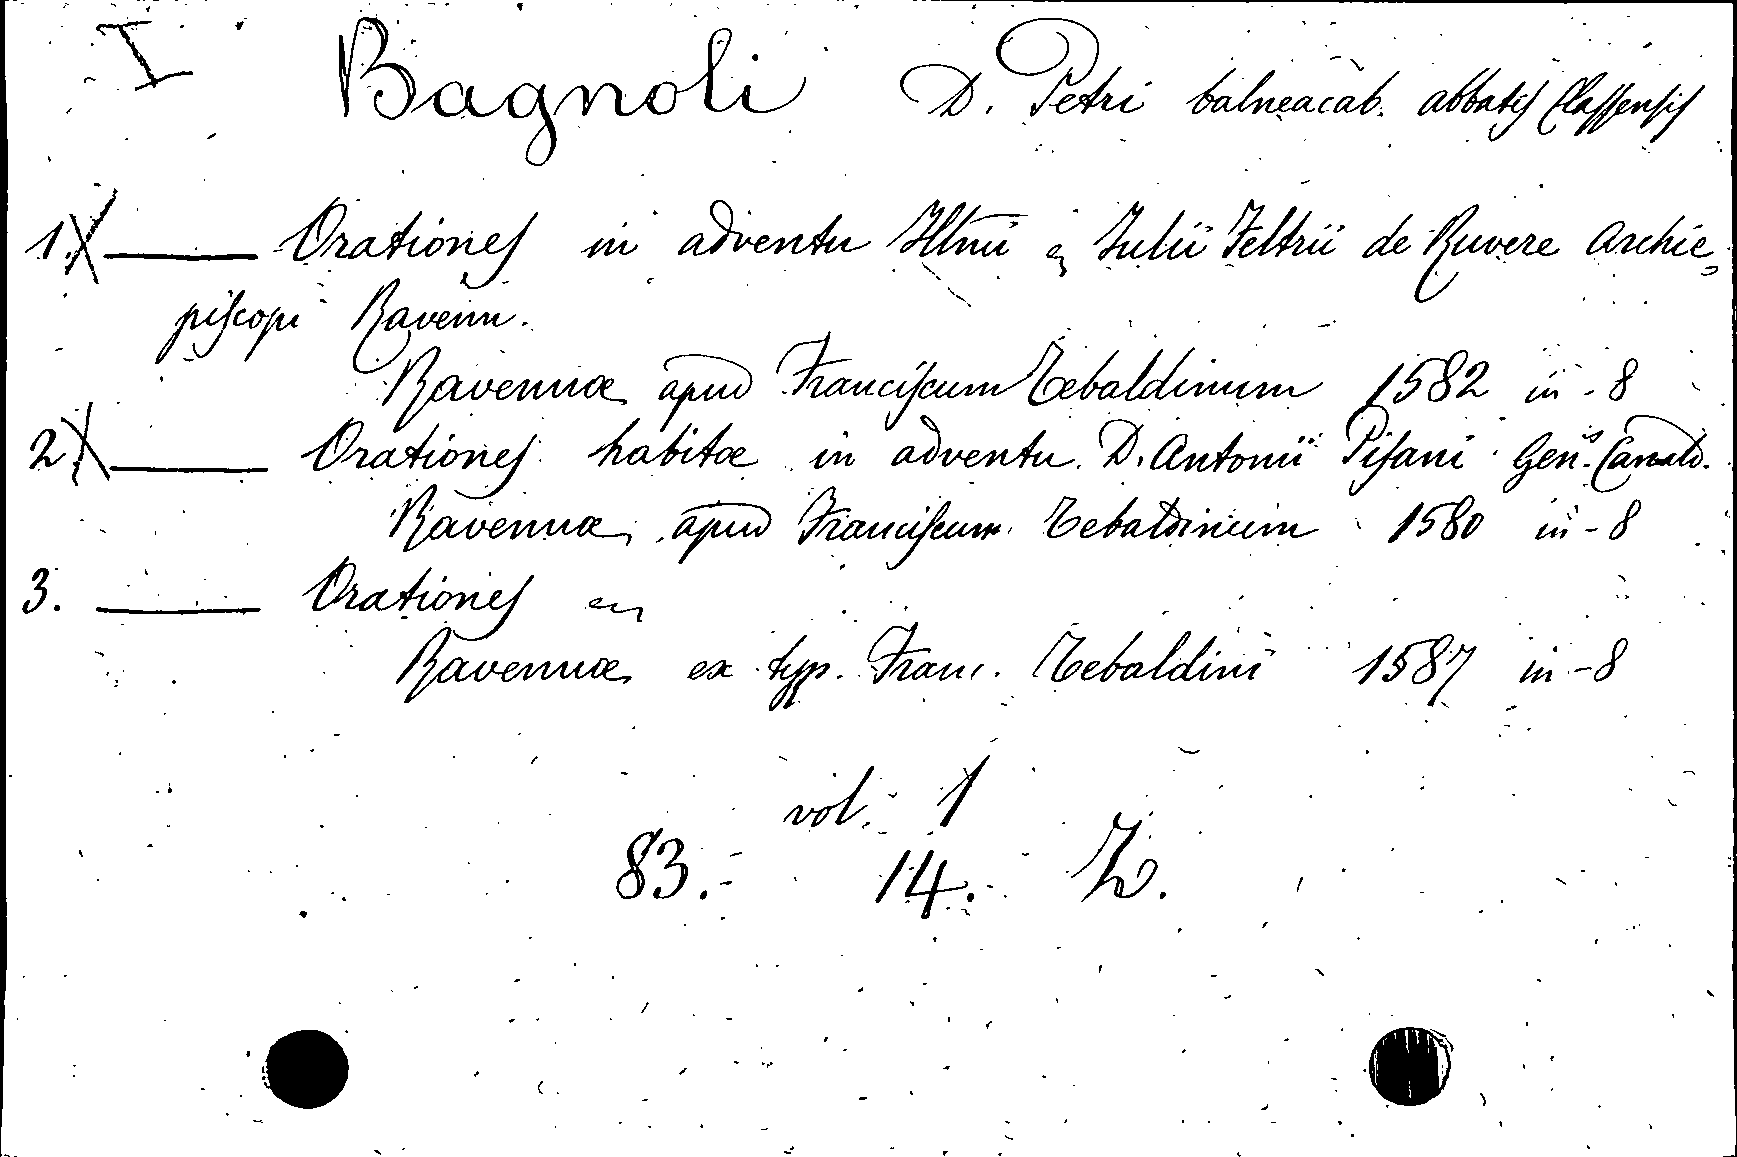 I Bagnoli D. Petri balneacab. abbatis Classensis
1. X —— Orationes in adventu Illmi & Iulii Feltrii de Ruvere Archie„
piscopi Ravenn.
Ravennæ apud Franciscum Tebaldinum 1582 in-8
2 X —— Orationes habitæ in adventu D. Antonii Pisani Gen.is Camald.
Ravennæ apud Franciscum Tebaldinum 1580 in-8
3. —— Orationes
Ravennæ ex typ. Franc. Tebaldini 1587 in-8
vol. 1
83. 14. Z.